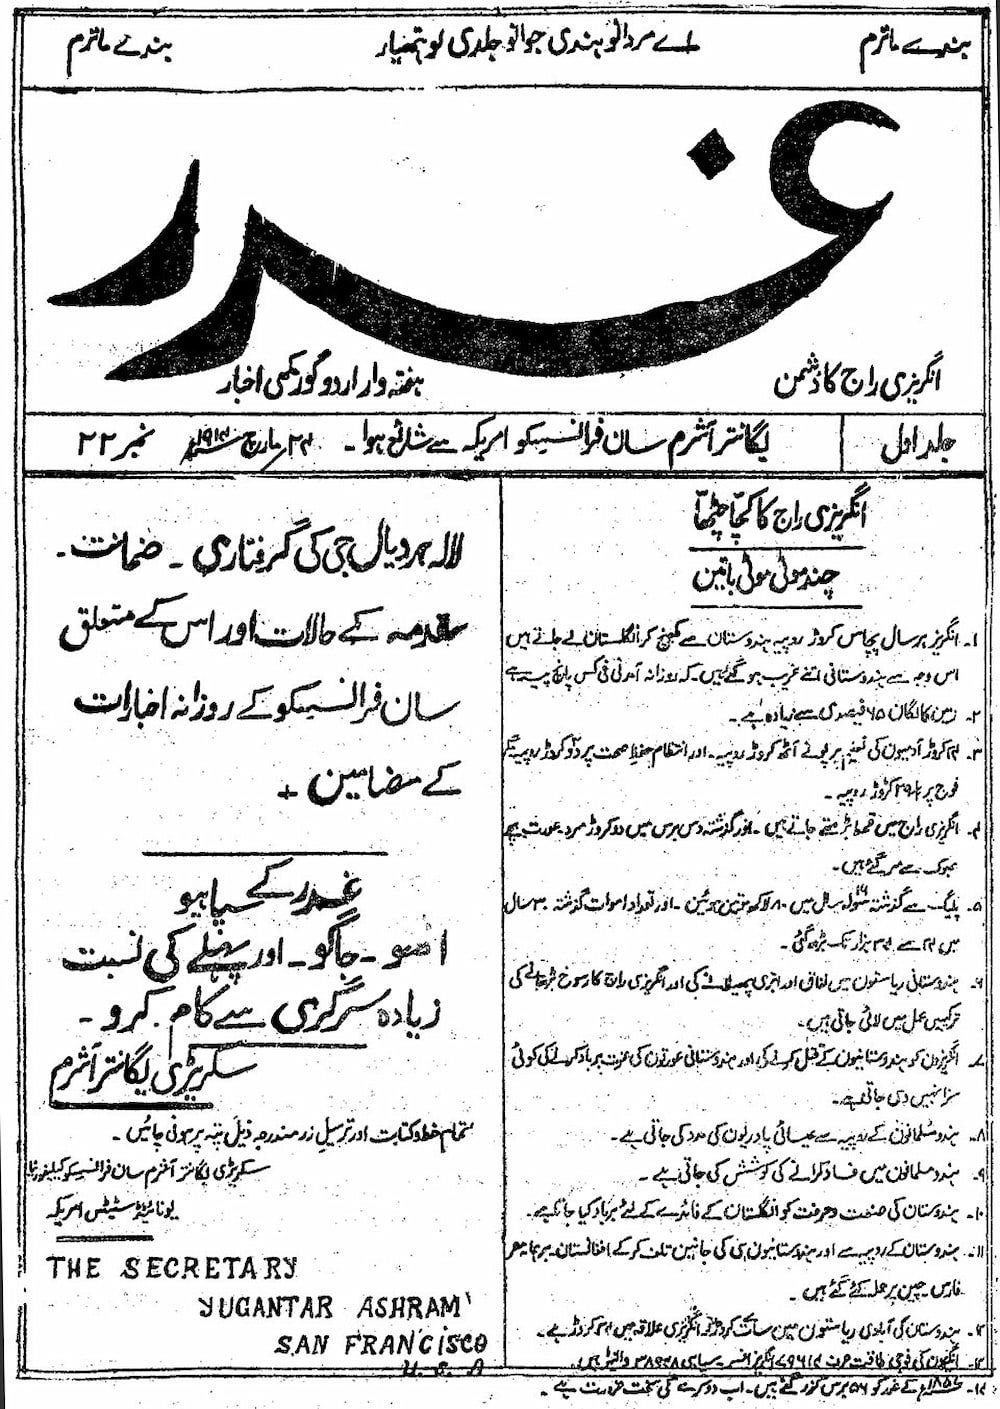 بندے ماترم
اے مردانو ہندی جوانو جلدی لو ہتھیار
بندے ماترم
غدر
انگریزی راج کا دشمن
ہفتہ وار اردو گورمکھی اخبار
جلد اول
یگانتر آشرم سان فرانسیسکو امریکہ سے شائع ہوا۔
۲۴ مارچ سنہ ۱۹۱۴ء
نمبر ۲۲
انگریزی راج کا کچّا چٹھّا
چند موٹی موٹی باتیں
۱۔ انگریز ہر سال پچاس کروڑ روپیہ ہندوستان سے کھینچ کر انگلستان لے جاتے ہیں
اس وجہ سے ہندوستانی اتنے غریب ہو گئے ہیں۔ کہ روزانہ آمدنی فی کس پانچ پیسہ ہے
۲۔ زمین کا لگان ۶۵ فیصدی سے زیادہ ہے۔
۳۔ ۲۴ کروڑ آدمیوں کی تعلیم پر پونے آٹھ کروڑ روپیہ۔ اور انتظام حفظ صحت پر دو کروڑ روپیہ مگر
فوج پر ۲۹½ کروڑ روپیہ۔
۴۔ انگریزی راج میں قحط بڑھتے جاتے ہیں۔ اور گذشتہ دس برس میں دو کروڑ مرد۔ عورت بچے
بھوک سے مر گئے ہیں۔
۵۔ پلیگ سے گذشتہ سولہ سال میں ۸۰ لاکھ موتیں ہوئیں۔ اور تعداد اموات گذشتہ ۳۰ سال
میں ۲۴ سے ۳۴ ہزار تک بڑھ گئی۔
۶۔ ہندوستانی ریاستوں میں نفاق اور ابتری پھیلانے کی اور انگریزی راج کا رسوخ بڑھانے کی
ترکیبیں عمل میں لائی جاتی ہیں۔
۷۔ انگریزوں کو ہندوستانیوں کے قتل کرنے کی اور ہندوستانی عورتوں کی عزت برباد کرنے کی کوئی
سزا نہیں دی جاتی ہے۔
۸۔ ہندو مسلمانوں کے روپیہ سے عیسائی پادریوں کی مدد کی جاتی ہے۔
۹۔ ہندو مسلمانوں میں فساد کرانے کی کوشش کی جاتی ہے۔
۱۰۔ ہندوستان کی صنعت و حرفت کو انگلستان کے فائدے کے لئے برباد کیا جاتا ہے۔
۱۱۔ ہندوستان کے روپیہ سے اور ہندوستانیوں ہی کی جانیں تلف کر کے افغانستان۔ برہما۔ مصر
فارس۔ چین پر حملے کئے گئے ہیں۔
۱۲۔ ہندوستان کی آبادی ریاستوں میں سات کروڑ اور انگریزی علاقہ میں ۲۴ کروڑ ہے۔
۱۳۔ انگریزوں کی فوجی طاقت صرف ۷۹۶۱۴ انگریز افسر۔ سپاہی ۳۸۹۴۸ والنٹیر ہیں۔
۱۴۔ ۱۸۵۷ء کے غدر کو ۵۶ برس گزر گئے ہیں۔ اب دوسرے کی سخت ضرورت ہے۔
لالہ ہردیال جی کی گرفتاری۔ ضمانت۔
مقدمہ کے حالات اور اس کے متعلق
سان فرانسیسکو کے روزانہ اخبارات
کے مضامین +
غدر کے سپاہیو
اٹھو۔ جاگو۔ اور پہلے کی نسبت
زیادہ سرگرمی سے کام کرو۔
سکریٹری یگانتر آشرم
تمام خط و کتابت اور ترسیل زر مندرجہ ذیل پتہ پر ہونی چاہئیں۔
سکریٹری یگانتر آشرم سان فرانسیسکو کیلیفورنیا
یونائیٹڈ سٹیٹس امریکہ
THE SECRETARY
YUGANTAR ASHRAM
SAN FRANCISCO
U. S. A